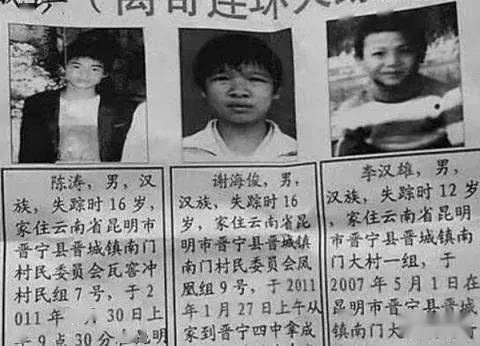 （离奇连环
陈涛，男，汉
族，失踪时16岁，
家住云南省昆明市
晋宁县晋城镇南门
村民委员会瓦窑冲
村民组7号，于2
011年 月30日上
9点30分 昆明
谢海俊，男，
汉族，失踪时16
岁，家住云南省昆
明市晋宁县晋城镇
南门村民委员会凤
凰组9号，于2011
年1月27日上午从
家到晋宁四中拿成
李汉雄，男，
汉族，失踪时12岁
，家住云南省昆明
市晋宁县晋城镇南
门大村一组，于
2007年5月1日在
昆明市晋宁县晋城
镇南门大